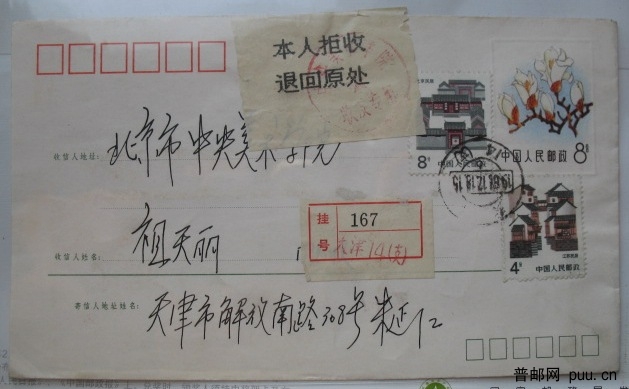 本人拒收
退回原处
北京民居
8分
中国人民邮政
8分
中国人民邮政
收信人地址:
北京市中央美术学院
4分
中国人民邮政
挂号
167
天津14(支)
收信人姓名:
祖天丽
寄信人地址姓名:
天津市解放南路308号
普邮网 puu.cn